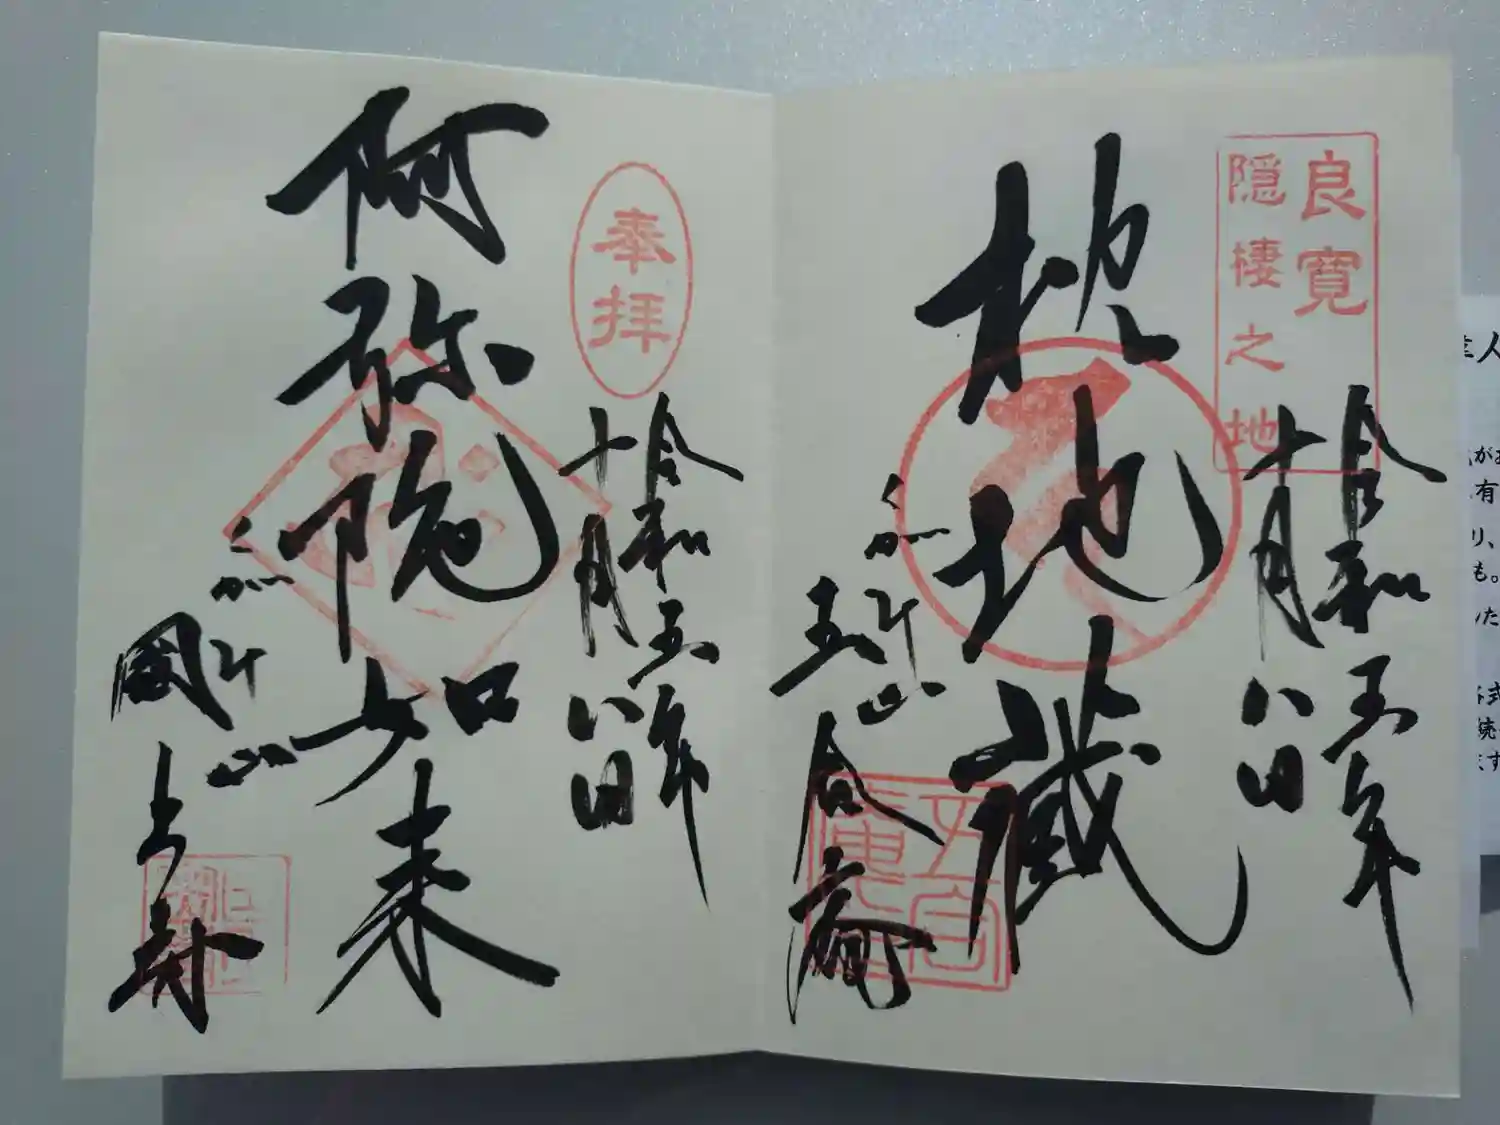 良寛
隠棲之地
令和五年
十月八日
枕地蔵
くがみ山
五合庵
奉拝
令和五年
十月八日
阿弥陀如来
くがみ山
國上寺